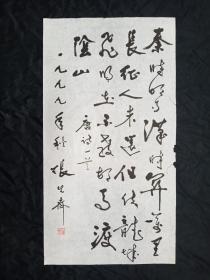 秦时明月汉时关万里
长征人未还但使龙城
飞将在不教胡马渡
阴山
唐诗一首
一九九九年秋